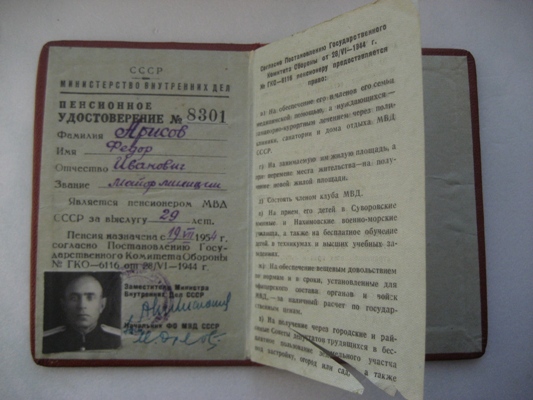 СССР
МИНИСТЕРСТВО ВНУТРЕННИХ ДЕЛ
ПЕНСИОННОЕ
УДОСТОВЕРЕНИЕ № 8301
Фамилия Арисов
Имя Федор
Отчество Иванович
Звание майор милиции
Является пенсионером МВД
СССР за выслугу 29 лет.
Пенсия назначена с 19/VII 1954 г.
согласно Постановлению Госу-
дарственного Комитета Обороны
№ ГКО—6116 от 28/VI—1944 г.
Заместитель Министра
Внутренних Дел СССР
Начальник ФО МВД СССР
Согласно Постановлению Государственного
Комитета Обороны от 28/VI—1944 г.
№ ГКО—6116 пенсионеру предоставляется
право:
а) На обеспечение его и членов его семьи
медицинской помощью, а нуждающихся—
санаторно-курортным лечением через поли-
клиники, санатории и дома отдыха МВД
СССР.
г) На занимаемую им жилую площадь, а
при перемене места жительства—на полу-
чение новой жилой площади.
д) Состоять членом клуба МВД.
На прием его детей в Суворовские
военные и Нахимовские военно-морские
училища, а также на бесплатное обучение
детей в техникумах и высших учебных за-
ведениях.
На обеспечение вещевым довольствием
по нормам и в сроки, установленные для
офицерского состава органов и войск
МВД,—за наличный расчет по государ-
ственным ценам.
На получение через городские и рай-
онные Советы депутатов трудящихся в бес-
платное пользование земельного участка
под застройку, огород или сад, а также